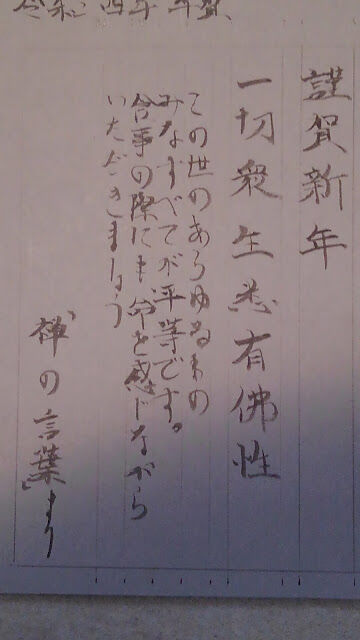 令和四年 年賀
謹賀新年
一切衆生悉有佛性
この世のあらゆるもの
みなすべてが平等です。
食事の際にも命を感じながら
いただきましょう
「禅の言葉」より